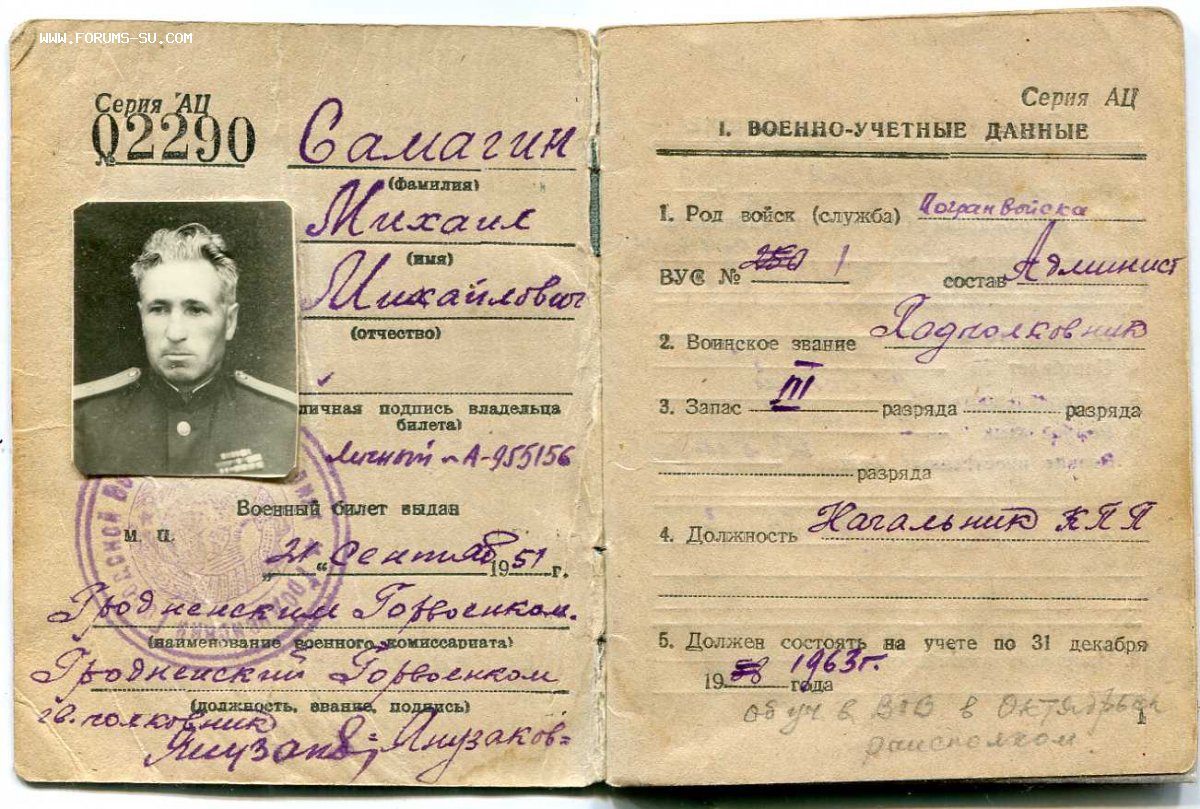 WWW.FORUMS-SU.COM
Серия АЦ
№ 02290
Самагин
(фамилия)
Михаил
(имя)
Михайлович
(отчество)
личная подпись владельца
билета)
Личный № А-955156
Военный билет выдан
М. П.
„21“ сентяб 1951 г.
Гродненским Горвоенком.
(наименование военного комиссариата)
Гродненский Горвоенком
(должность, звание, подпись)
гв. полковник
Янузаков
Серия АЦ
I. ВОЕННО-УЧЕТНЫЕ ДАННЫЕ
1. Род войск (служба) Погранвойска
ВУС № 250 1 состав Админист
2. Воинское звание Подполковник
3. Запас III разряда разряда
разряда
4. Должность Начальник КПП
5. Должен состоять на учете по 31 декабря
19 1963г. года
об уч в ВОВ в Октябрьск
райисполком.
1